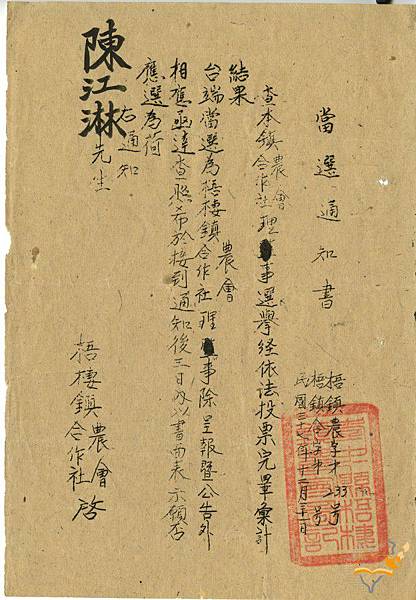 當選通知書
梧鎮農字才233号
梧鎮合字才　号
民國三十七年十二月二日
查本鎮農會合作社理事選舉經依法投票完畢彙計
結果
台端當選為梧棲鎮農會合作社理事除呈報暨公告外
相應函達查照希於接到通知後三日內以書面表示願否
應選為荷
右通知
陳江淋先生
梧棲鎮農會合作社啓